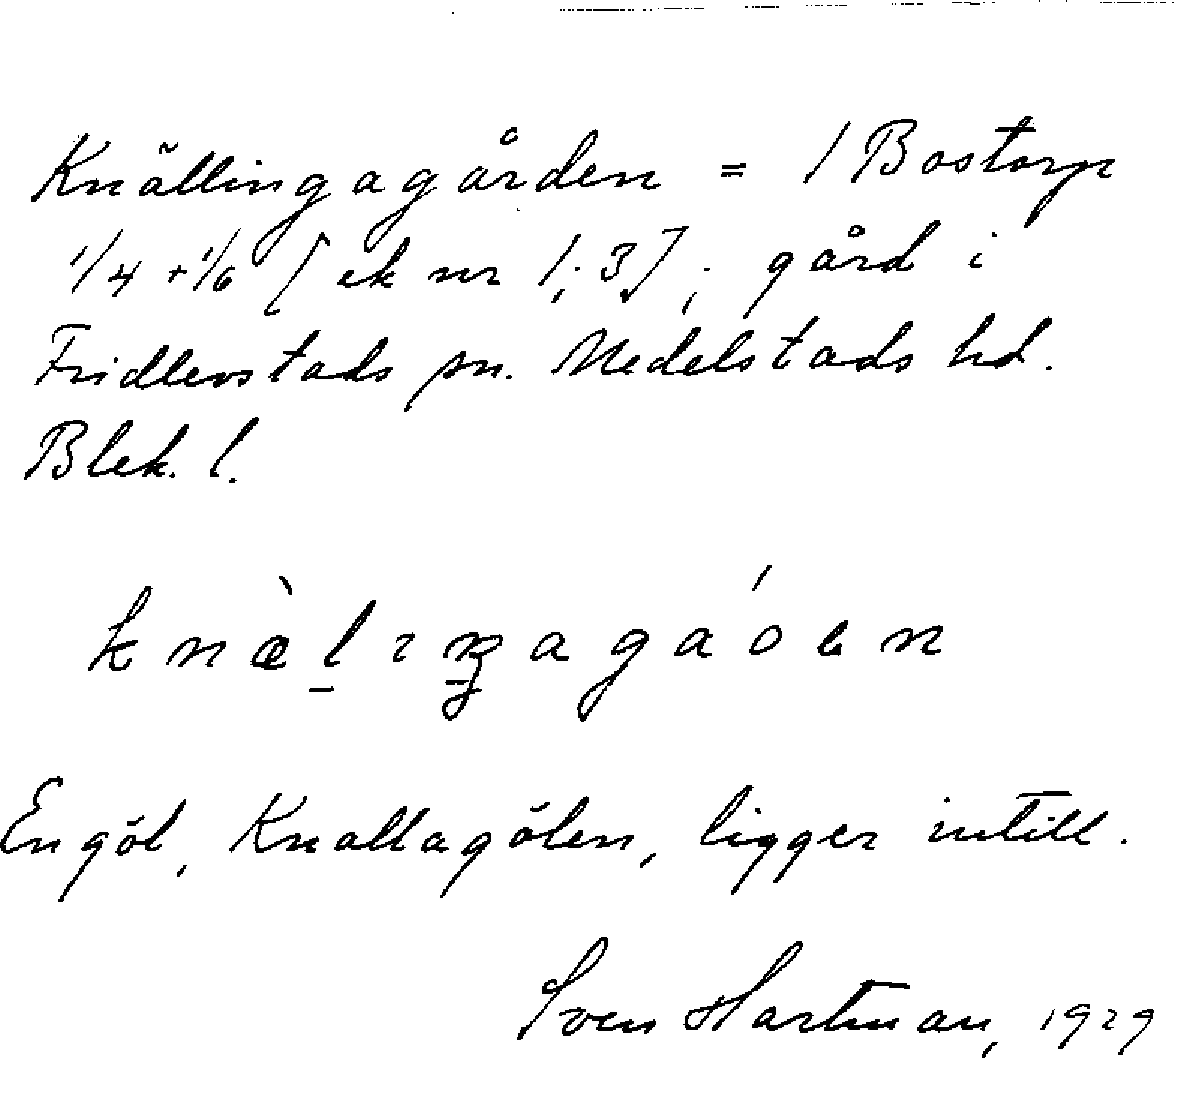 Knällingagården = 1 Bostorp
1/4 + 1/6 [ek nr 1:3], gård i
Fridlevstads sn. Medelstads hd.
Blek. l.
En göl, Knallagölen, ligger intill.
Sven Hartman, 1929